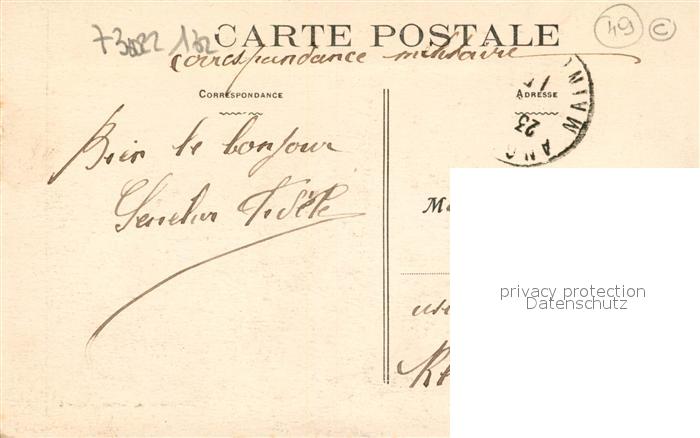 73022 132
CARTE POSTALE
49 C
correspondance militaire
CORRESPONDANCE
ADRESSE
23
ANG
MAIN
Bien le bonjour
Fidèle
M
privacy protection
Datenschutz